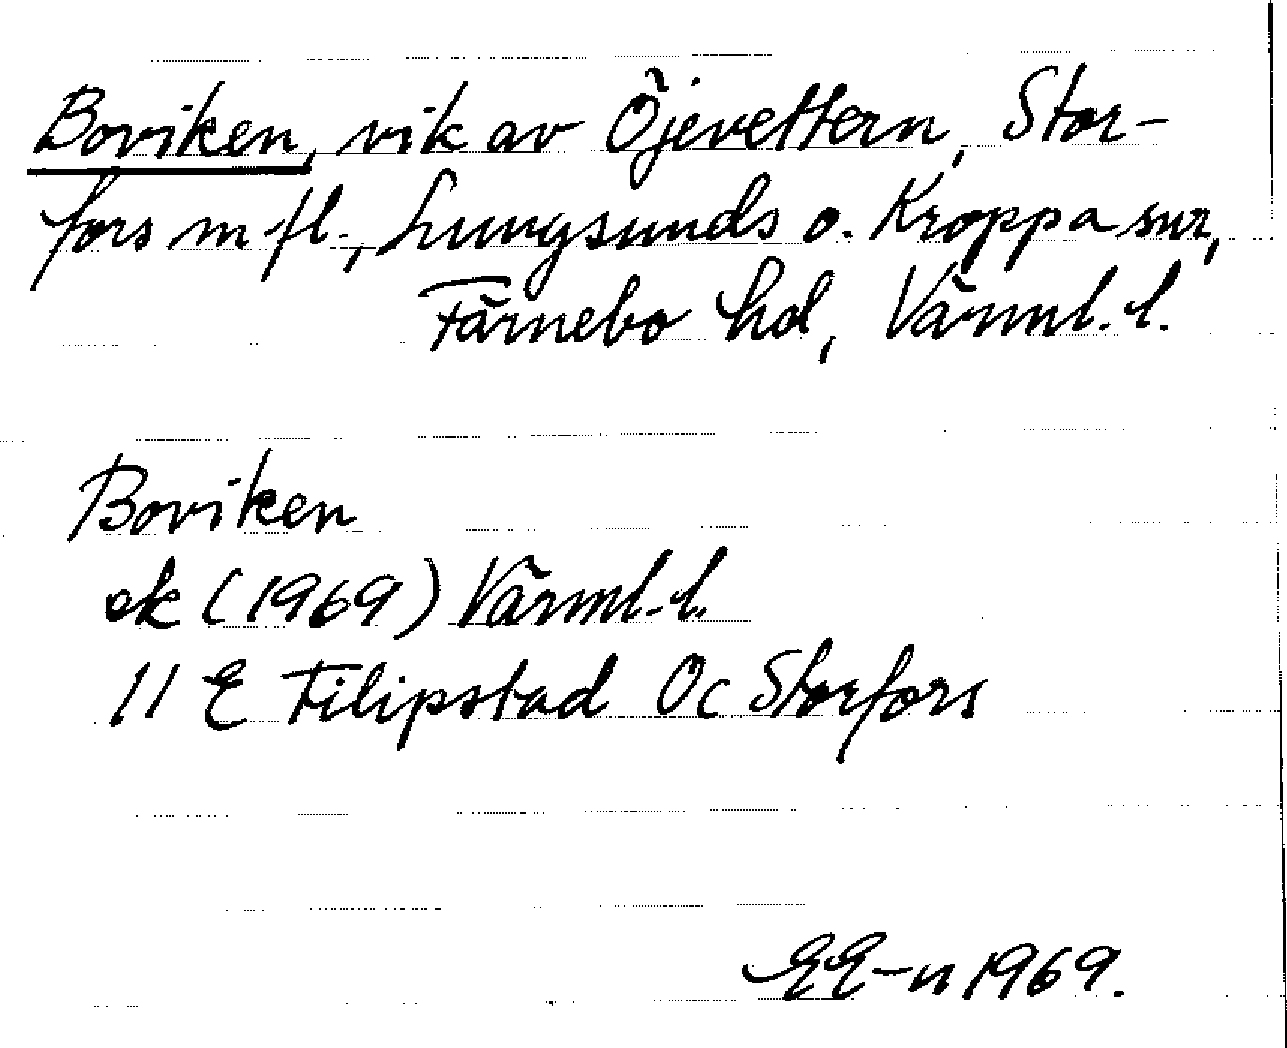 Boviken, vik av Öjevettern, Stor-
fors m fl., Lungsunds o. Kroppa snr,
Färnebo hd, Värml. l.
Boviken
ek (1969) Värml. l.
11 E Filipstad Oc Storfors
EE-n 1969.